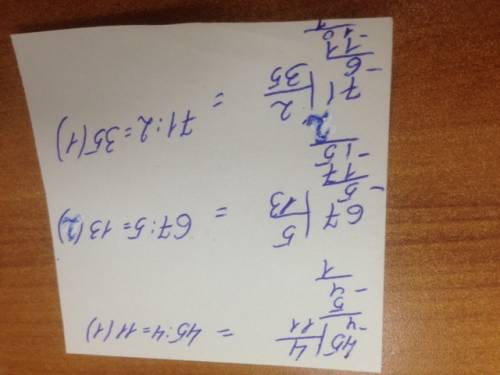 45 | 4 = 45:4=11(1)
-4 | 11
5
-4
1
67 | 5 = 67:5=13(2)
-5 | 13
17
-15
2
71 | 2 = 71:2=35(1)
-6 | 35
11
-10
1